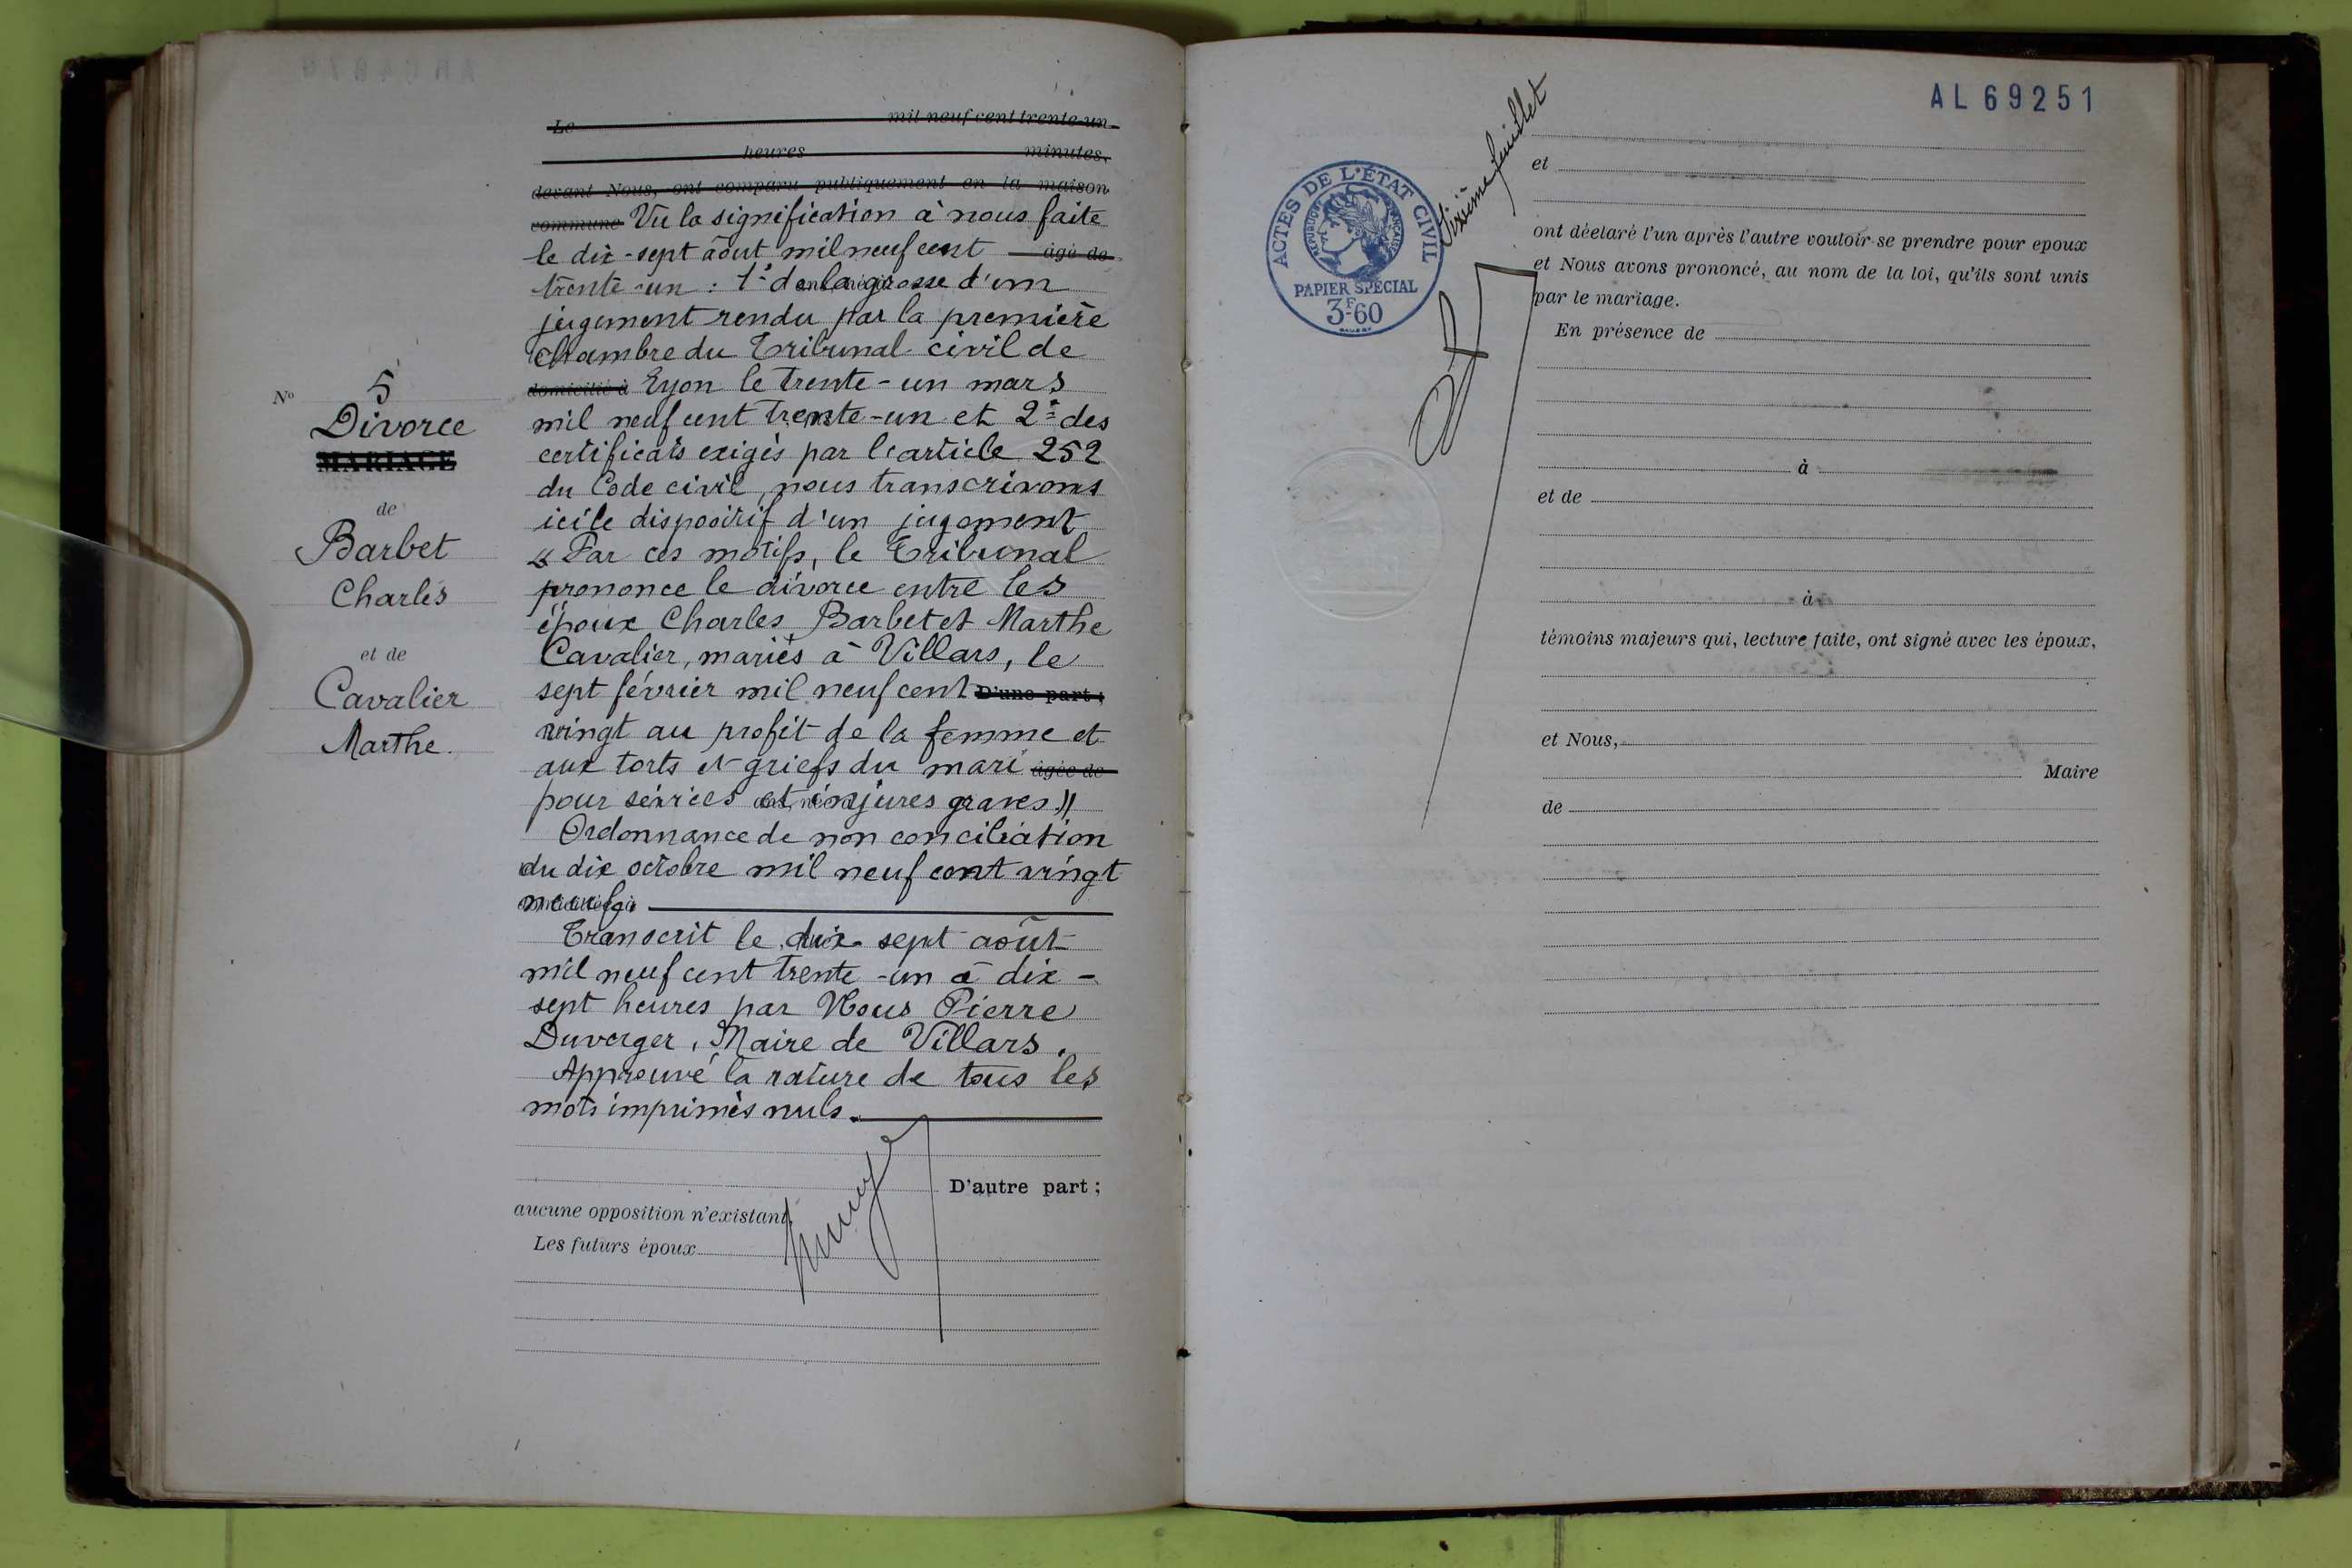 Le mil neuf cent trente-un
heures minutes.
devant Nous, ont comparu publiquement en la maison
commune Vu la signification à nous faite
le dix-sept août mil neuf cent âgé de
trente-un : 1° de la grosse d'un
jugement rendu par la première
chambre du Tribunal civil de
domicilié à Lyon le trente-un mars
mil neuf cent trente-un et 2° des
certificats exigés par l'article 252
du Code civil, nous transcrivons
ici le dispositif d'un jugement
« Par ces motifs, le Tribunal
prononce le divorce entre les
époux Charles Barbet et Marthe
Cavalier, mariés à Villars, le
sept février mil neuf cent D'une part ;
vingt au profit de la femme et
aux torts et griefs du mari âgée de
pour sévices et injures graves »
Ordonnance de non conciliation
du dix octobre mil neuf cent vingt
neuf.
Transcrit le dix sept août
mil neuf cent trente-un à dix-
sept heures par Nous Pierre
Duverger, Maire de Villars.
Approuvé la rature de tous les
mots imprimés nuls.
D'autre part ;
aucune opposition n'existant.
Les futurs époux
N° 5
Divorce
MARIAGE
de
Barbet
Charles
et de
Cavalier
Marthe.
AL 69251
Sixième feuillet
ACTES DE L'ÉTAT CIVIL
RÉPUBLIQUE FRANÇAISE
PAPIER SPÉCIAL
3F60
et
ont déclaré l'un après l'autre vouloir se prendre pour époux
et Nous avons prononcé, au nom de la loi, qu'ils sont unis
par le mariage.
En présence de
à
et de
à
témoins majeurs qui, lecture faite, ont signé avec les époux,
et Nous,
Maire
de